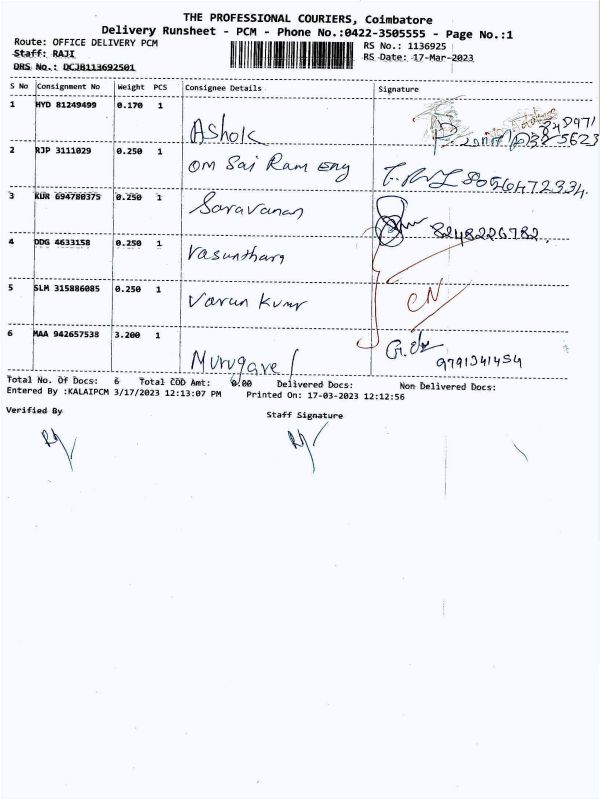 THE PROFESSIONAL COURIERS, Coimbatore
Delivery Runsheet - PCM - Phone No.:0422-3505555 - Page No.:1
Route: OFFICE DELIVERY PCM
RS No.: 1136925
Staff: RAJI
RS Date: 17-Mar-2023
DRS No.: DCJB113692501
S No Consignment No Weight PCS Consignee Details Signature
1 HYD 81249499 0.170 1 Ashok
2 RJP 3111029 0.250 1 Om Sai Ram Eng 8056472334
3 KUR 694780375 0.250 1 Saravanan 8248226782
4 DDG 4633158 0.250 1 Vasunthara
5 SLM 315886085 0.250 1 Varun Kumr CN
6 MAA 942657538 3.200 1 Murugavel 9791341454
Total No. Of Docs: 6 Total COD Amt: 0.00 Delivered Docs: Non Delivered Docs:
Entered By :KALAIPCM 3/17/2023 12:13:07 PM Printed On: 17-03-2023 12:12:56
Verified By
Staff Signature